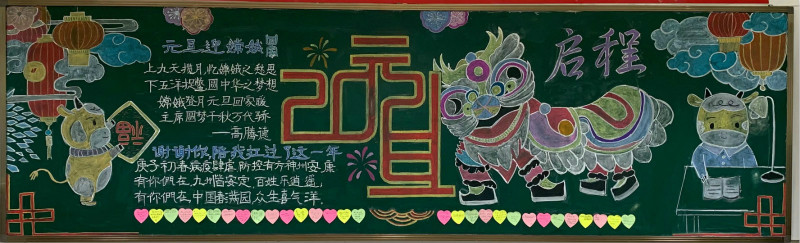 元旦迎嫦娥
上九天揽月,忆嫦娥之愁思
下五洋捉鳖,圆中华之梦想
嫦娥登月元旦回家暖
主席圆梦千秋万代骄
——高腾达
谢谢你陪我扛过了这一年
庚子初春疾疫肆虐,防控有方神州安康
有你們在,九州皆安定,百姓乐逍遥,
有你們在,中国春满园,众生喜气洋。
福
20元旦
启程